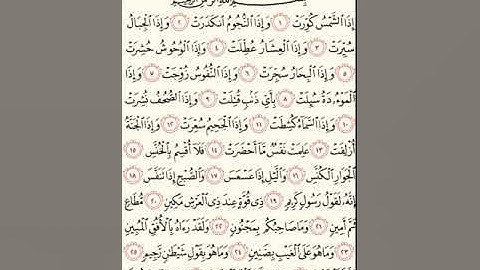 إِذَا الشَّمْسُ كُوِّرَتْ ١ وَإِذَا النُّجُومُ انكَدَرَتْ ٢ وَإِذَا الْجِبَالُ
سُيِّرَتْ ٣ وَإِذَا الْعِشَارُ عُطِّلَتْ ٤ وَإِذَا الْوُحُوشُ حُشِرَتْ
٥ وَإِذَا الْبِحَارُ سُجِّرَتْ ٦ وَإِذَا النُّفُوسُ زُوِّجَتْ ٧ وَإِذَا
الْمَوْءُودَةُ سُئِلَتْ ٨ بِأَيِّ ذَنبٍ قُتِلَتْ ٩ وَإِذَا الصُّحُفُ نُشِرَتْ
١٠ وَإِذَا السَّمَاءُ كُشِطَتْ ١١ وَإِذَا الْجَحِيمُ سُعِّرَتْ ١٢ وَإِذَا الْجَنَّةُ
أُزْلِفَتْ ١٣ عَلِمَتْ نَفْسٌ مَّا أَحْضَرَتْ ١٤ فَلَا أُقْسِمُ بِالْخُنَّسِ ١٥
الْجَوَارِ الْكُنَّسِ ١٦ وَاللَّيْلِ إِذَا عَسْعَسَ ١٧ وَالصُّبْحِ إِذَا تَنَفَّسَ ١٨
إِنَّهُ لَقَوْلُ رَسُولٍ كَرِيمٍ ١٩ ذِي قُوَّةٍ عِندَ ذِي الْعَرْشِ مَكِينٍ ٢٠ مُّطَاعٍ
ثَمَّ أَمِينٍ ٢١ وَمَا صَاحِبُكُم بِمَجْنُونٍ ٢٢ وَلَقَدْ رَآهُ بِالْأُفُقِ الْمُبِينِ
٢٣ وَمَا هُوَ عَلَى الْغَيْبِ بِضَنِينٍ ٢٤ وَمَا هُوَ بِقَوْلِ شَيْطَانٍ رَّجِيمٍ ٢٥